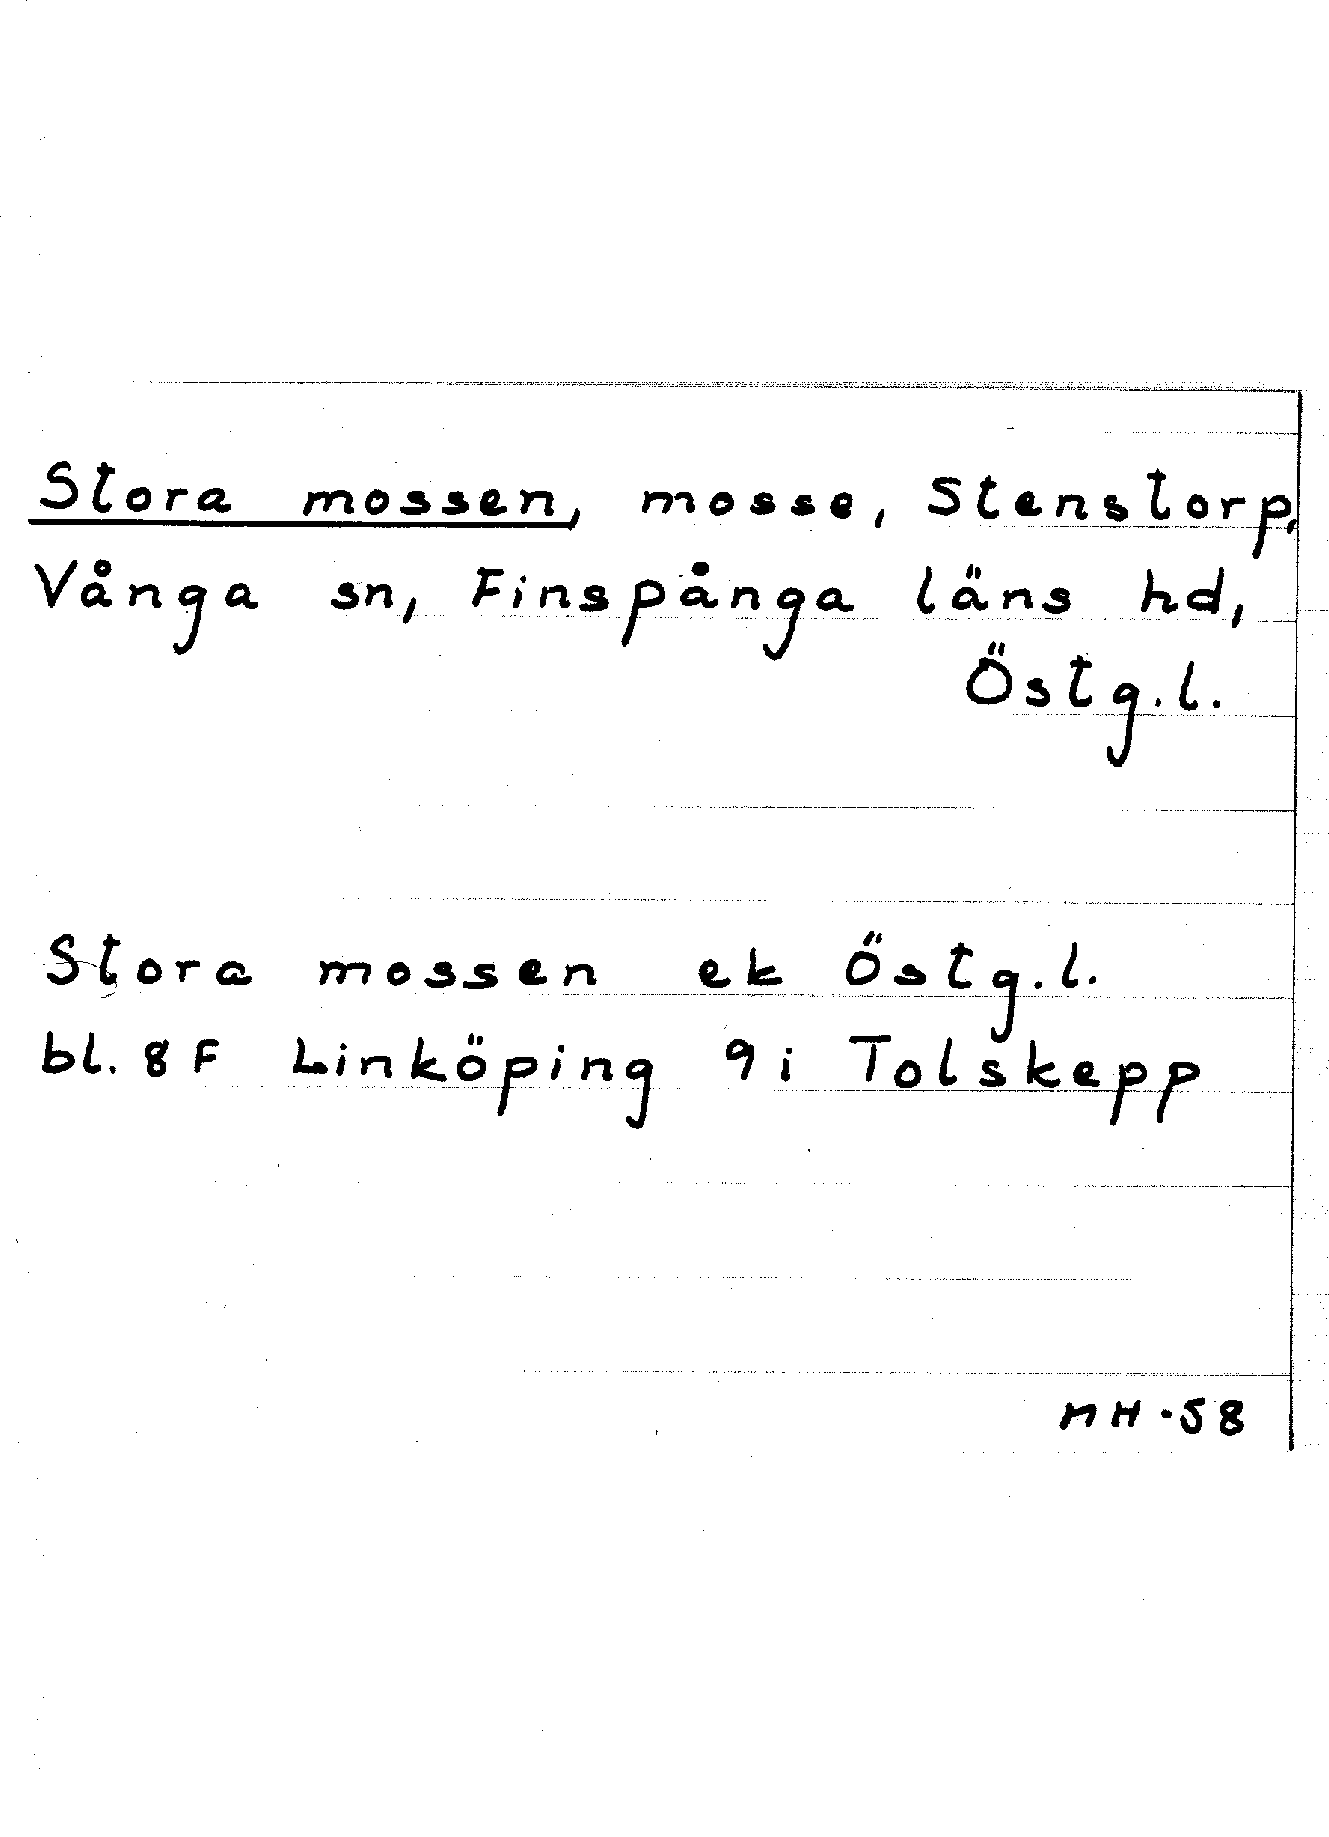 Stora mossen, mosse, Stenstorp,
Vånga sn, Finspånga läns hd,
Östg.l.
Stora mossen ek Östg.l.
bl. 8 F Linköping 9 i Tolskepp
MH -58